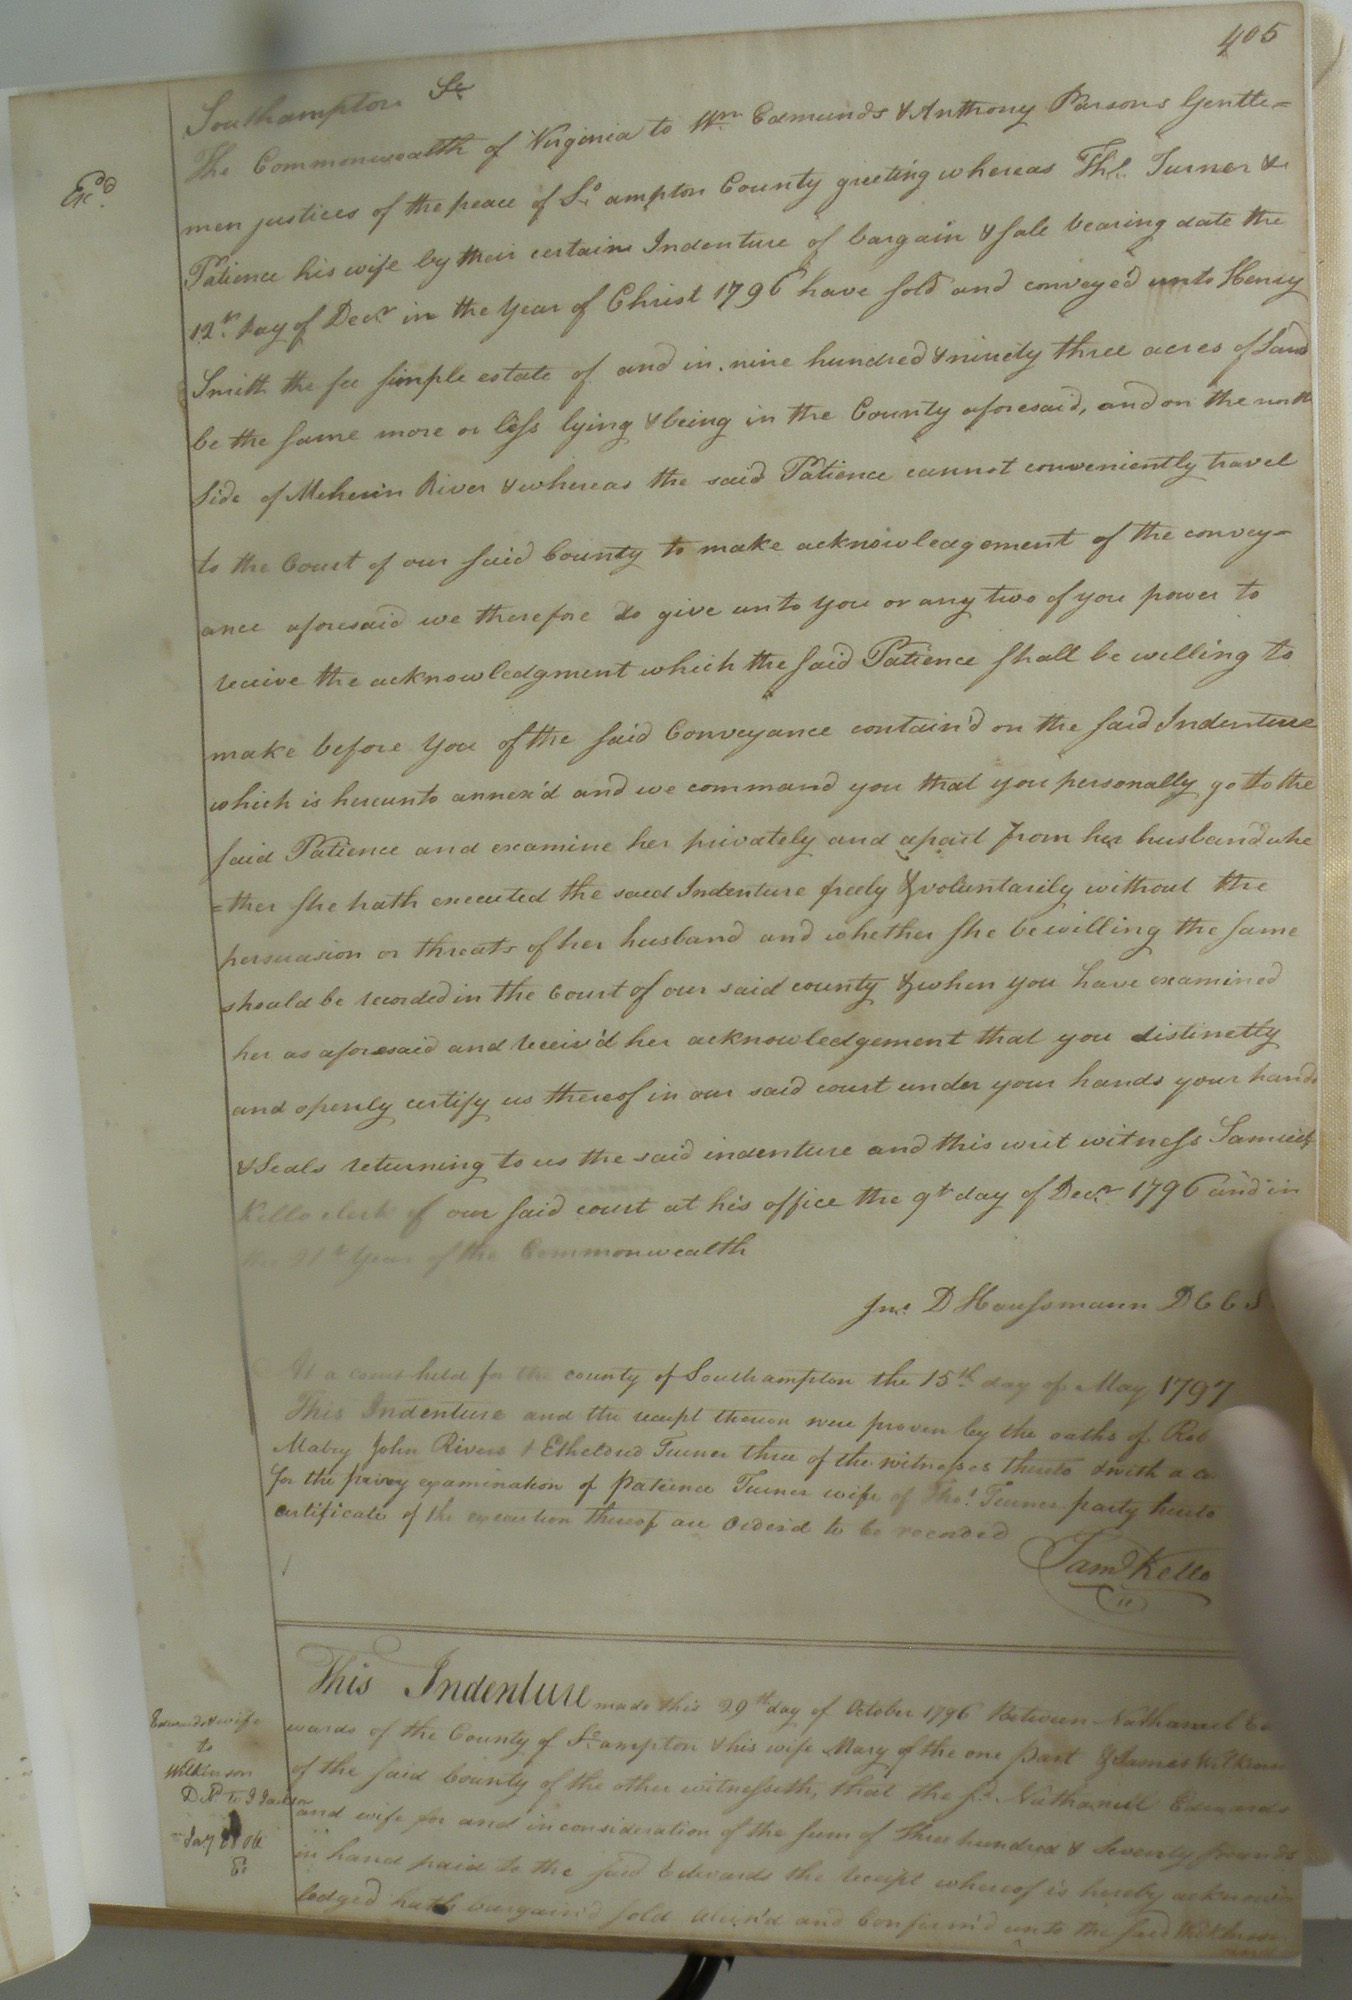 405
Southampton Sc
Exd.
The Commonwealth of Virginia to Wm. Edmunds & Anthony Parsons Gentle=
men justices of the peace of So. ampton County greeting whereas Ths. Turner &
Patience his wife by their certain Indenture of bargain & sale bearing date the
12th. day of Decr. in the Year of Christ 1796 have sold and convey'd unto Henry
Smith the fee simple estate of and in nine hundred & ninety three acres of Land
be the same more or less lying & being in the County aforesaid, and on the north
side of Meherin River & whereas the said Patience cannot conveniently travel
to the Court of our said County to make acknowledgement of the convey=
ance aforesaid we therefore do give unto you or any two of you power to
receive the acknowledgment which the said Patience shall be willing to
make before You of the said Conveyance contain'd on the said Indenture
which is hereunto annex'd and we command you that you personally go to the
said Patience and examine her privately and apart from her husband whe
=ther she hath executed the said Indenture freely & voluntarily without the
persuasion or threats of her husband and whether she be willing the same
should be recorded in the Court of our said county & when you have examined
her as aforesaid and receiv'd her acknowledgement that you distinctly
and openly certify us thereof in our said court under your hands your hands
& Seals returning to us the said indenture and this writ witness Samuel
Kello clerk of our said court at his office the 9th day of Decr. 1796 and in
the 21st Year of the Commonwealth
Jno. D Haussmann D C C S
At a court held for the county of Southampton the 15th. day of May 1797
This Indenture and the receipt thereon were proven by the oaths of Rob
Mabry John Rivers & Etheldred Turner three of the witnesses thereto & with a
for the privey examination of Patience Turner wife of Thos. Turner party hereto
certificate of the execution thereof are Order'd to be recorded
Saml Kello
This Indenture made this 29th day of October 1796 Between Nathaniel Ed
wards of the County of So. ampton & his wife Mary of the one part & James Wilkinson
of the said County of the other witnesseth, that the sd. Nathaniel Edwards
and wife for and in consideration of the sum of three hundred & Seventy pounds
in hand paid to the said Edwards the receipt whereof is hereby acknow
ledged hath bargain'd sold alien'd and Confirm'd unto the said Wilkinson
Edwards & wife
to
Wilkinson